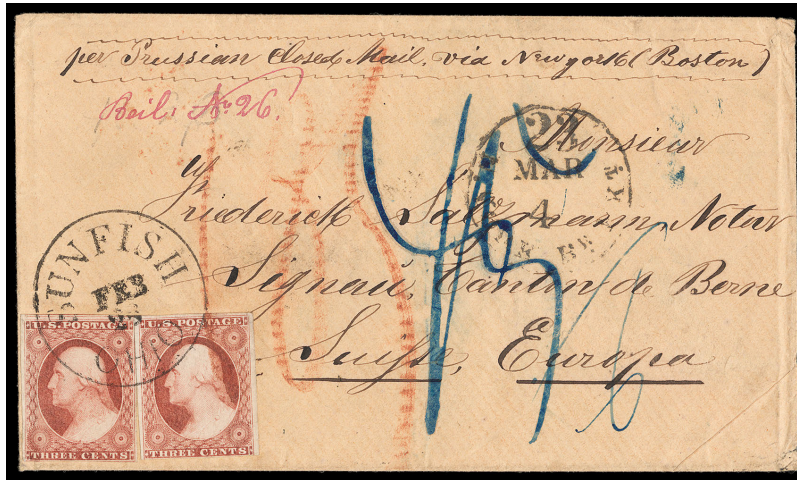 per Prussian Closed Mail. via Newyork (Boston)
Beil: No 26.
23
MAR
4
N. YORK BR. PKT
Monsieur
Friederich Salzmann, Notar
Signau, Canton de Berne
Suisse, Europa
SUNFISH
FEB
OHIO
U.S. POSTAGE
THREE CENTS
U.S. POSTAGE
THREE CENTS